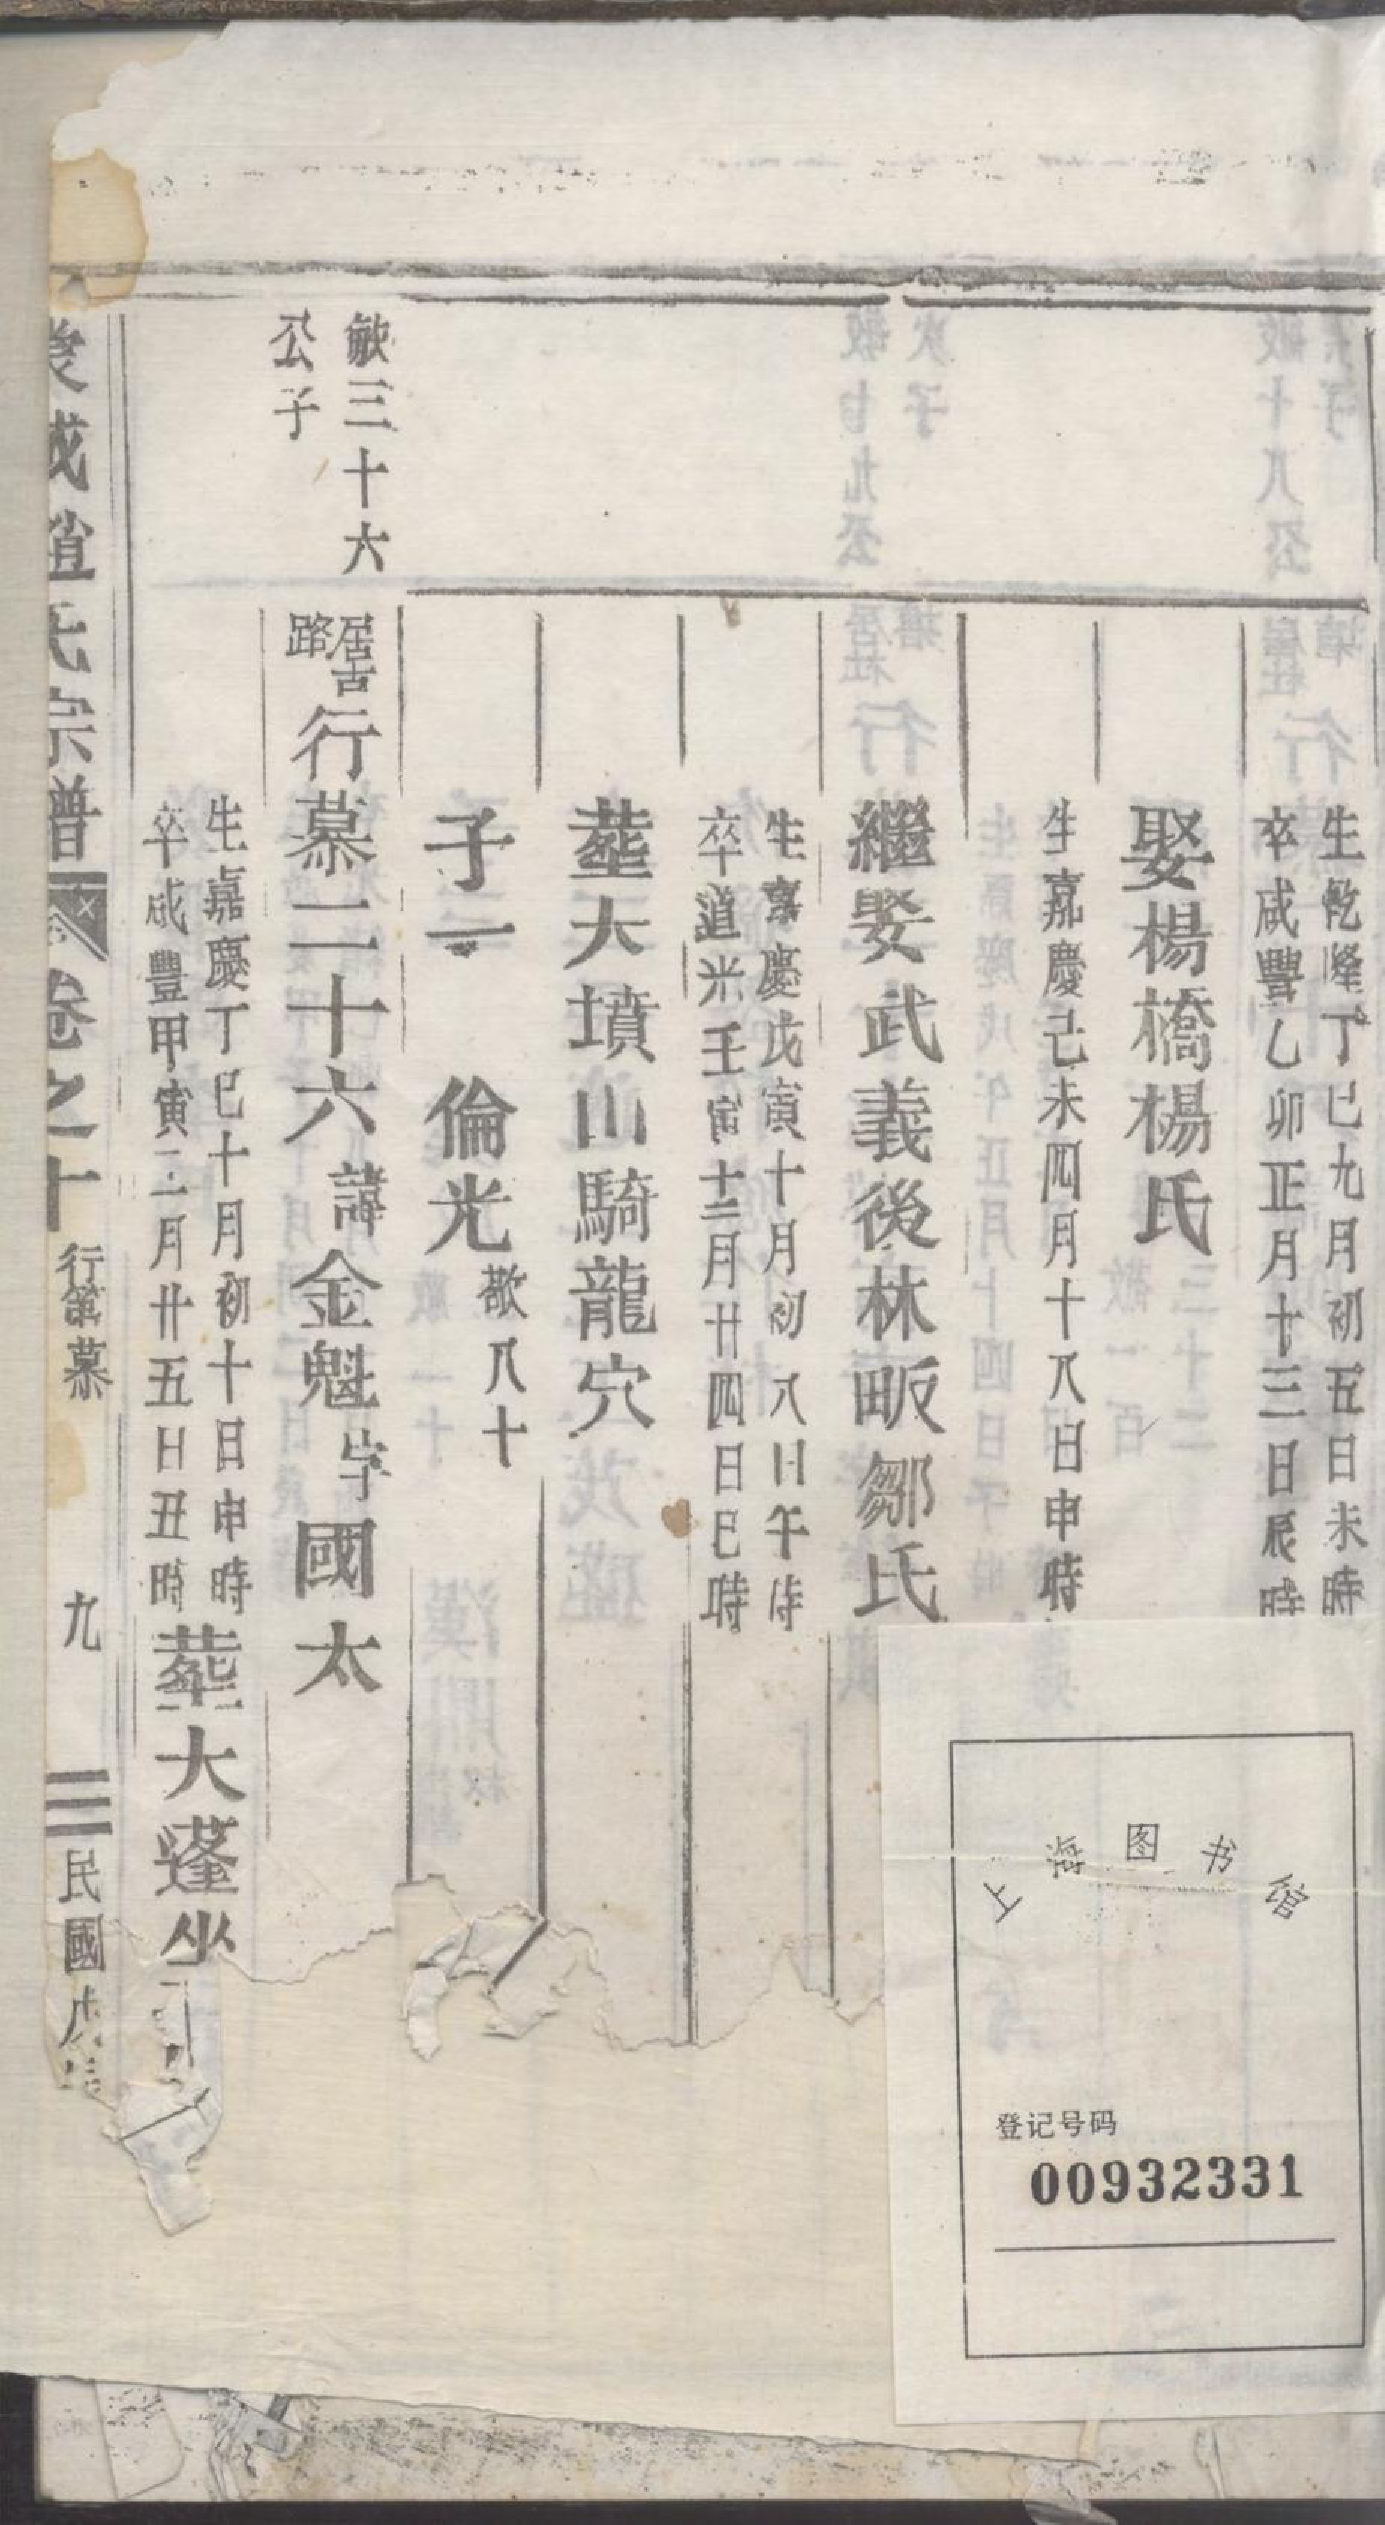 生乾隆丁巳九月初五日未時
卒咸豐乙卯正月十三日辰時
娶楊橋楊氏
生嘉慶己未四月十八日申時
繼娶武義後林畈鄒氏
生嘉慶戊寅十月初八日午時
卒道光壬寅十二月廿四日巳時
葬大墳山騎龍穴
子一 倫光敬八十
敏三十六
公子
居古
路
行慕二十六諱金魁字國太
生嘉慶丁巳十月初十日申時
卒咸豐甲寅二月廿五日丑時葬大蓬坐
趙氏宗譜 卷之十 行第慕 九 民國
上海图书馆
登记号码
00932331